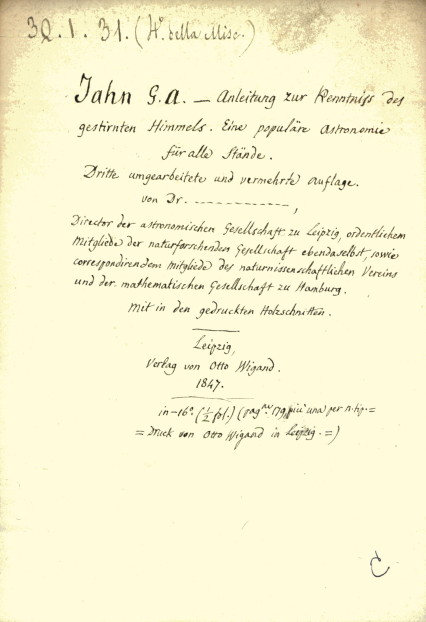 32.1.31. (4º della Misc.)
Jahn G.A. — Anleitung zur Kenntniss des
gestirnten Himmels. Eine populäre Astronomie
für alle Stände.
Dritte umgearbeitete und vermehrte Auflage.
von Dr. - - - - - - - - - - - - - ,
Director der astronomischen Gesellschaft zu Leipzig, ordentlichem
Mitgliede der naturforschenden Gesellschaft ebendaselbst, sowie
correspondirendem Mitgliede des naturnissenschaftlichen Vereins
und der mathematischen Gesellschaft zu Hamburg.
Mit in den gedruckten Holzschnitten.
Leipzig,
Verlag von Otto Wigand.
1847.
in-16º. (½ fol.) (pag.ne 179, più una per n. tip. =
= Druck von Otto Wigand in Leipzig. =)
C